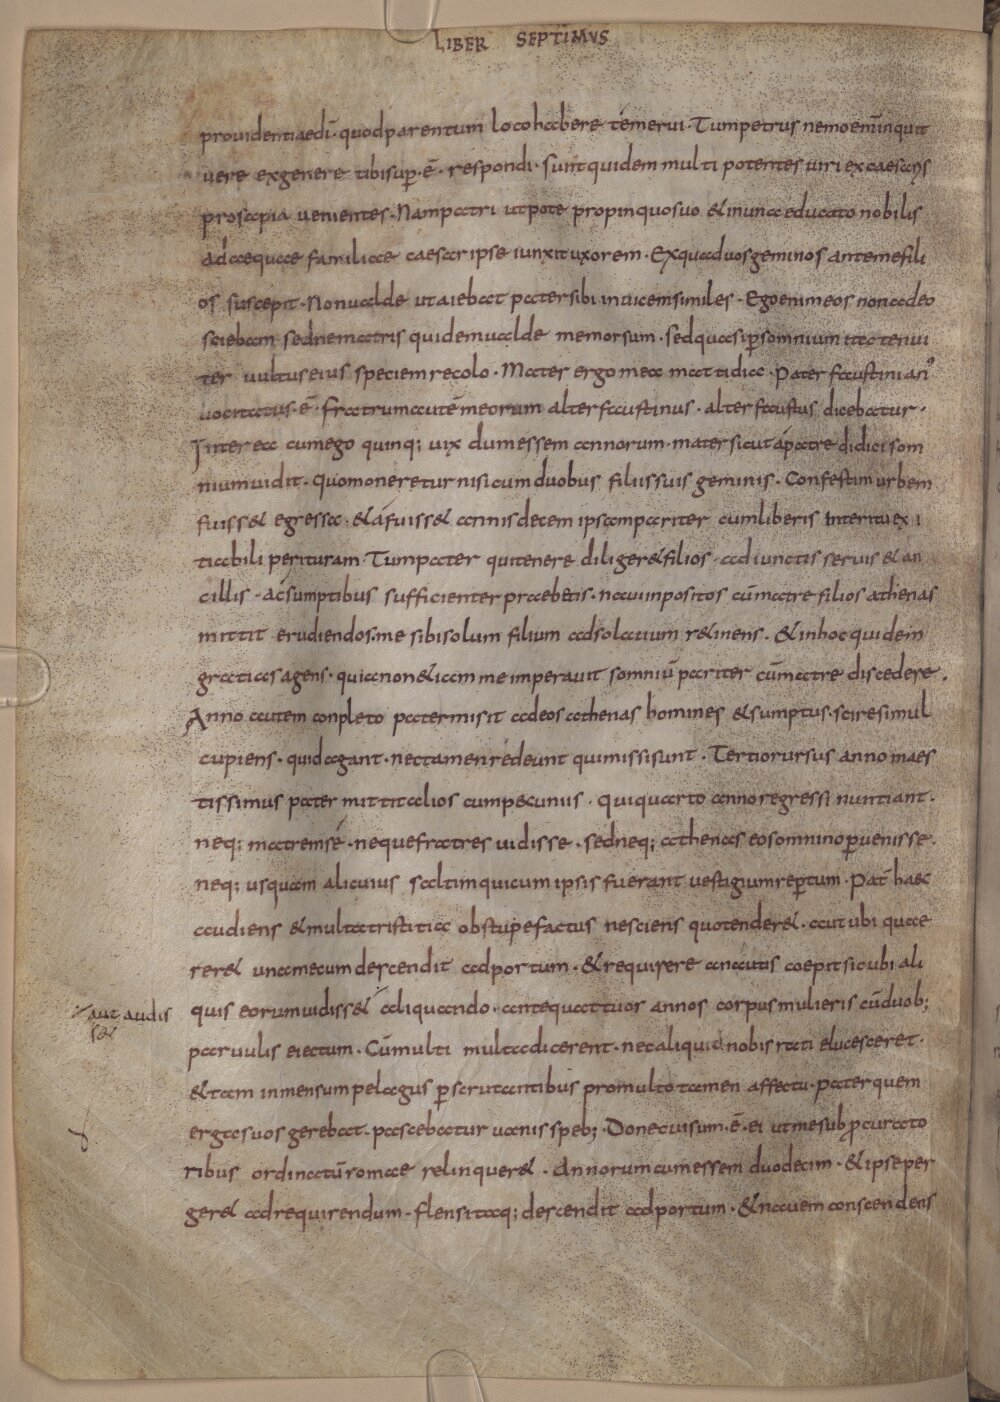 LIBER SEPTIMVS
prouidentiaedī· quodparentum locohabere temerui· Tumpetrus nemoenīnquit
uere exgenere tibisuꝑ·ē· respondi· suntquidem multi potentes uiri excaesaris
prosapia uenientes· Nampatri utpote propinquosuo &inuna educato nobilis
adaequae familiae caesar ipse iunxituxorem· Exquaduosgeminos antemefili
os suscepit· Nonualde utaiebat patersibi inuicemsimiles· Egoenimeos nonadeo
sciebam sednematris quidemualde memorsum· sedquasiꝑsomnium ita tenui
ter uultuseius speciemrecolo· Mater ergo mea mattidia· Pater faustinian᾽
uocitatus·ē· Fratrumautēmeorum alterfaustinus· alterfaustus dicebatur·
Interea cumego quinq; uix dumessem annorum· matersicutápatre didicisom
niumuidit· Quomoneretur nisicumduobus filiissuis geminis· Confestim urbem
fuiss& egressa· &áfuiss& annisdecem ipsampariter cumliberis Interituexi
tiabili perituram· Tumpater quitenere diliger&filios· adiunctis seruis &an
cillis· acsumptibus sufficienter praebetis· nauiimpositos cūmatre filios athenas
mittit erudiendos·me sibisolum filium adsolacium r&inens· &inhoc quidem
gratiasagens· quianon&iam me imperauit somniū pariter cūmatre discedere·
Anno autem conpleto patermisit adeos athenas homines &sumptus· sciresimul
cupiens· quidagant· nectamenredeunt quimissisunt· Tertiorursus anno maes
tissimus pater mittitalios cumpecuniis· quiquarto annoregressi nuntiant·
neq; matremsé· nequefratres uidisse· sedneq; athenas eosomninoꝑuenisse·
neq; usquam alicuius saltimquicumipsis fuerant uestigiumreꝑtum· Pat̄ haec
audiens &multatristitia obstupefactus nesciens quotender&· autubi quae
rer& unamecumdescendit adportum· &requirere anautis coepitsicubi ali
quis eorumuidiss& aliquando· antequattuos annos corpusmulieris cūduob;
aut audis
s&
paruulis eiectum· Cūmulti multadicerent· necaliquidnobis rati elucesceret·
&tam inmensumpelagus ꝑscrutantibus promultotamen affectu· paterquem
ergasuos gerebat· pascebatur uanisspeb; · Doneciuisum·ē· ei utmesubꝓcurato
ribus ordinatū romae relinquer&· Annorumcumessem duodecim· &ipseper
ger& adrequirendum· flensitaq; descendit adportum· &nauem conscendens